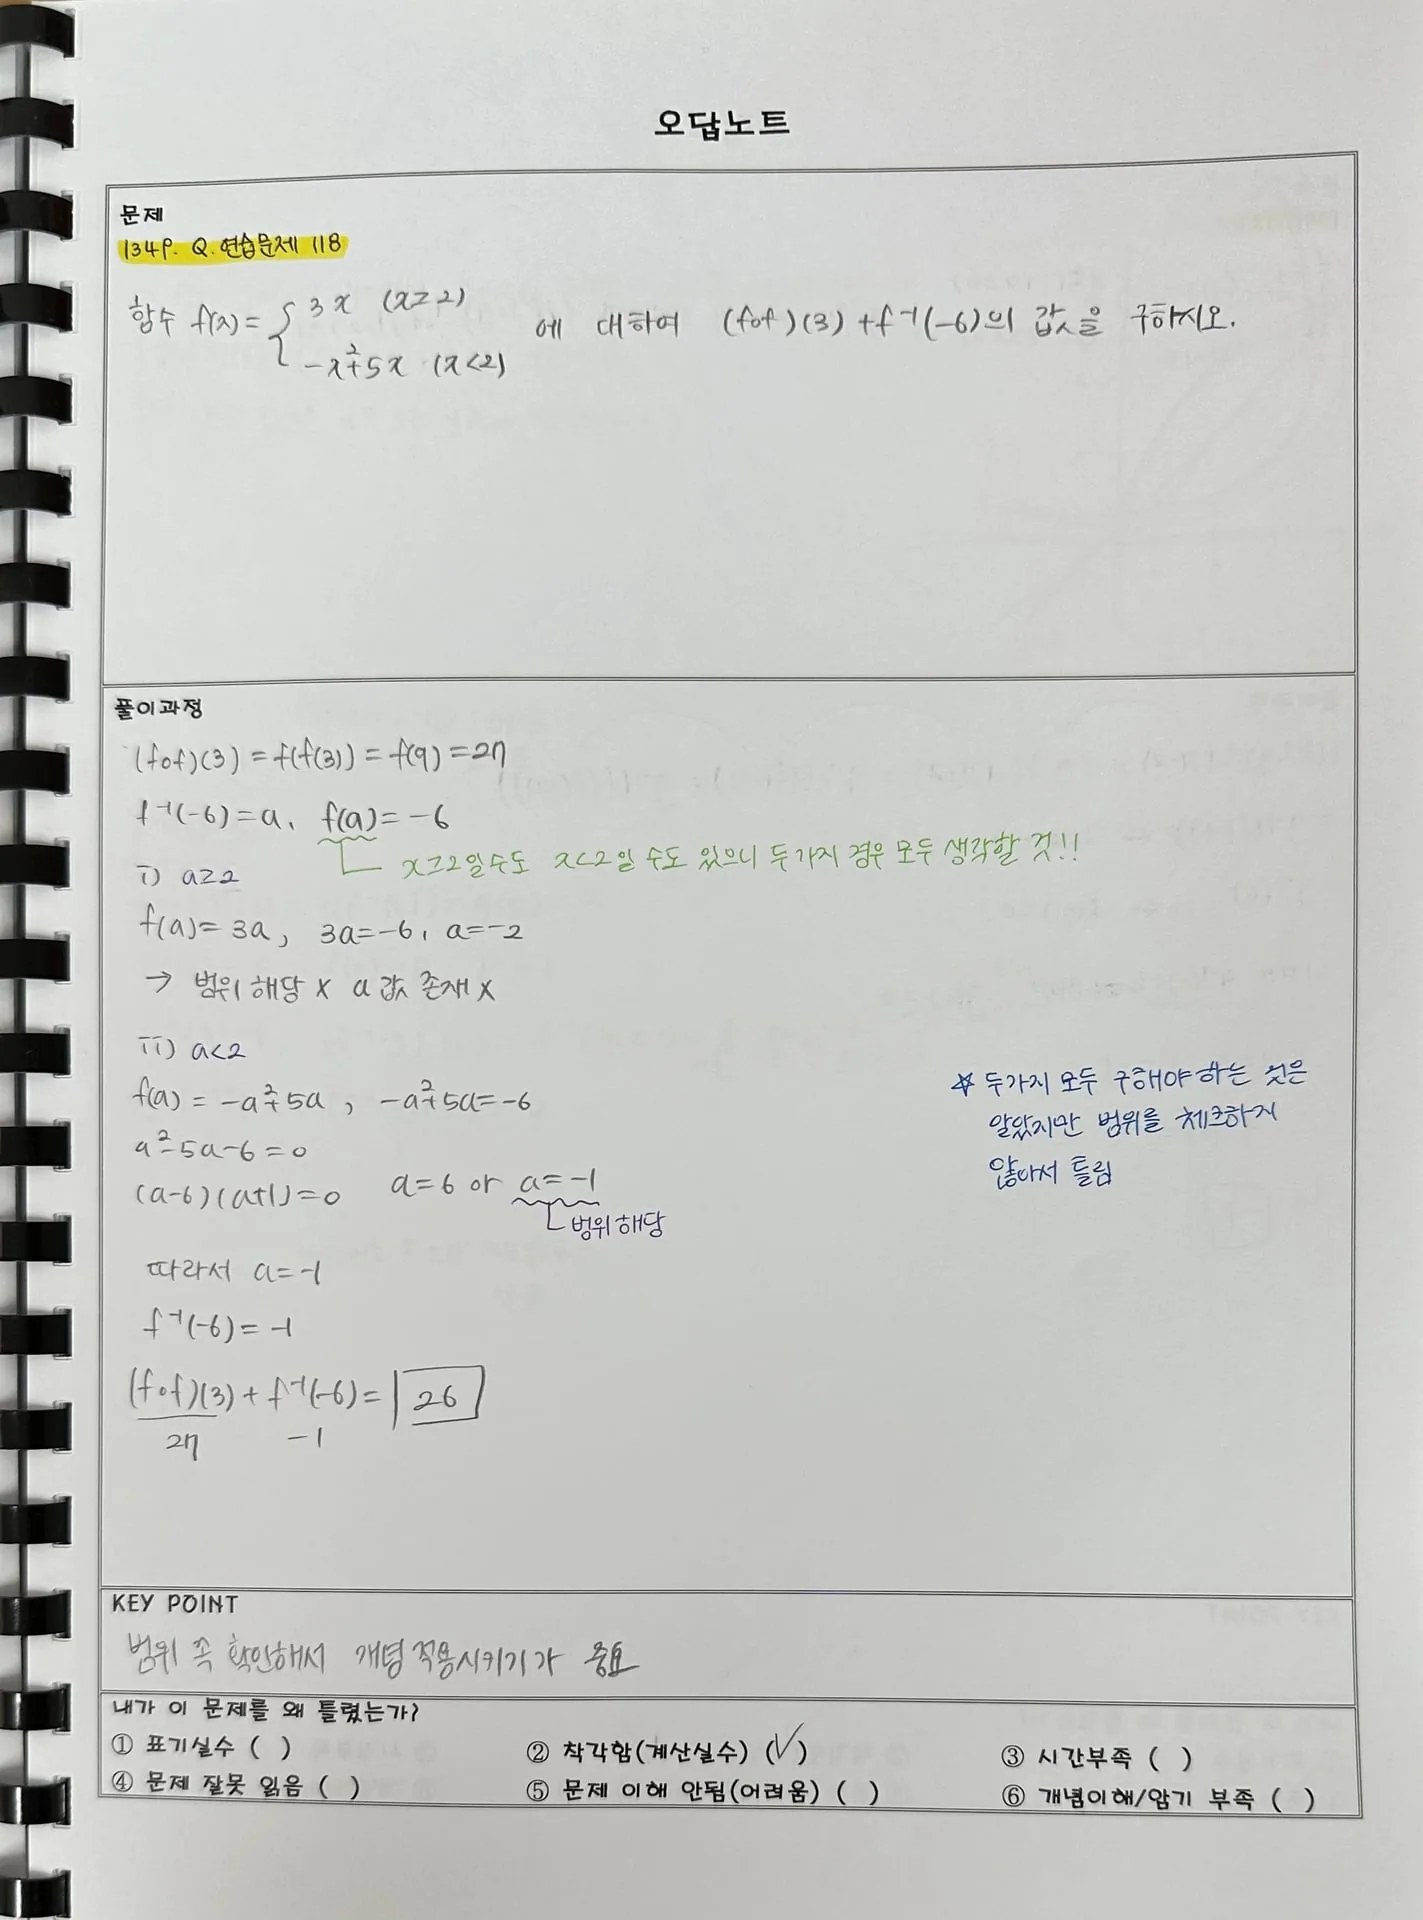 오답노트
문제
134P. Q. 연습문제 118
함수 f(x)= { 3x (x≥2)
-x²+5x (x<2)
에 대하여 (f∘f)(3)+f⁻¹(-6)의 값을 구하시오.
풀이과정
(f∘f)(3)=f(f(3))=f(9)=27
f⁻¹(-6)=a, f(a)=-6
x≥2일수도 x<2일 수도 있으니 두가지 경우 모두 생각할 것!!
i) a≥2
f(a)=3a, 3a=-6, a=-2
→ 범위 해당 x a 값 존재 x
ii) a<2
f(a) = -a²+5a, -a²+5a=-6
a²-5a-6=0
(a-6)(a+1)=0 a=6 or a=-1
범위 해당
☆ 두가지 모두 구해야 하는 것은
알았지만 범위를 체크하지
않아서 틀림
따라서 a=-1
f⁻¹(-6)=-1
(f∘f)(3)+f⁻¹(-6)= 26
27 -1
KEY POINT
범위 속 확인해서 개념 적용시키기가 중요
내가 이 문제를 왜 틀렸는가?
① 표기실수 ( ) ② 착각함(계산실수) (✓) ③ 시간부족 ( )
④ 문제 잘못 읽음 ( ) ⑤ 문제 이해 안됨(어려움) ( ) ⑥ 개념이해/암기 부족 ( )